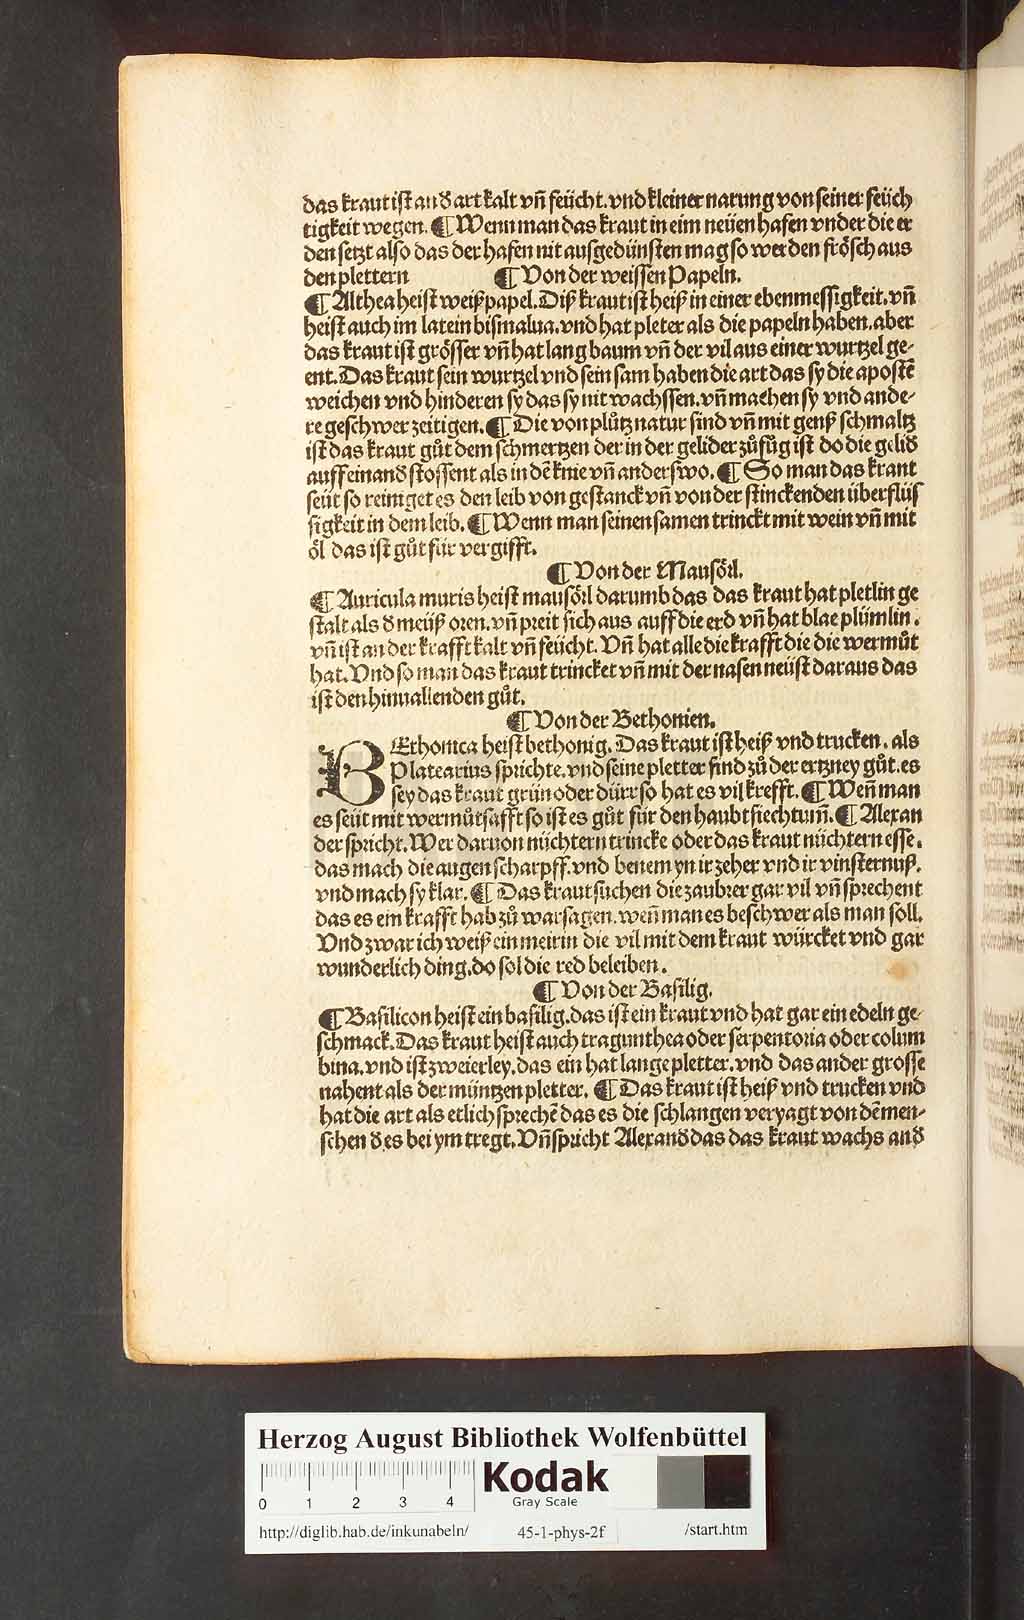 das kraut ist an đ art kalt vñ feücht. vnd kleiner narung von seiner feüch
tigkeit wegen. ¶ Wenn man das kraut in eim neüen hafen vnder die er
den setzt also das der hafen nit ausgedünsten mag so werden frösch aus
den plettern ¶ Von der weissen Papeln.
¶ Althea heist weiß papel. Diß kraut ist heiß in einer ebenmessigkeit. vñ
heist auch im latein bismalua. vnd hat pleter als die papeln haben. aber
das kraut ist grösser vñ hat lang baum vñ der vil aus einer wurtzel ge-
ent. Das kraut sein wurtzel vnd sein sam haben die art das sy die apostē
weichen vnd hinderen sy das sy nit wachssen. vñ machen sy vnd ande-
re geschwer zeitigen. ¶ Die von plůtz natur sind vñ mit genß schmaltz
ist das kraut gůt dem schmertzen der in der gelider zůfüg ist do die gelid
auff einanđ stossent als in dē knie vñ anderswo. ¶ So man das kraut
seüt so reiniget es den leib von gestanck vñ von der stinckenden überflüs
sigkeit in dem leib. ¶ Wenn man seinen samen trinckt mit wein vñ mit
öl das ist gůt für vergifft.
¶ Von der Mausörl.
¶ Auricula muris heist mausörl darumb das das kraut hat pletlin ge
stalt als đ meüß oren. vñ preit sich aus auff die erd vñ hat blae plümlin.
vñ ist an der krafft kalt vñ feücht. Vñ hat alle die krafft die die wermůt
hat. Vnd so man das kraut trincket vñ mit der nasen neüst daraus das
ist den hinuallenden gůt.
¶ Von der Bethonien.
BEthonica heist bethonig. Das kraut ist heiß vnd trucken. als
Platearius sprichte. vnd seine pletter sind zů der ertzney gůt. es
sey das kraut grün oder dürr so hat es vil krefft. ¶ Weñ man
es seüt mit wermůtsafft so ist es gůt für den haubtsiechtum̃. ¶ Alexan
der spricht. Wer daruon nüchtern trincke oder das kraut nüchtern esse.
das mach die augen scharpff. vnd benem yn ir zeher vnd ir vinsternuß.
vnd mach sy klar. ¶ Das kraut suchen die zaubrer gar vil vñ sprechent
das es ein krafft hab zů warsagen. weñ man es beschwer als man soll.
Vnd zwar ich weiß ein meirin die vil mit dem kraut würcket vnd gar
wunderlich ding. do sol die red beleiben.
¶ Von der Basilig.
¶ Basilicon heist ein basilig. das ist ein kraut vnd hat gar ein edeln ge-
schmack. Das kraut heist auch tragunthea oder serpentoria oder colum
bina. vnd ist zweierley. das ein hat lange pletter. vnd das ander grosse
nahent als der müntzen pletter. ¶ Das kraut ist heiß vnd trucken vnd
hat die art als etlich sprechē das es die schlangen veryagt von dē men-
schen đ es bei ym tregt. Vñ spricht Alexanđ das das kraut wachs anđ
Herzog August Bibliothek Wolfenbüttel
0 1 2 3 4
Kodak
Gray Scale
http://diglib.hab.de/inkunabeln/ 45-1-phys-2f /start.htm